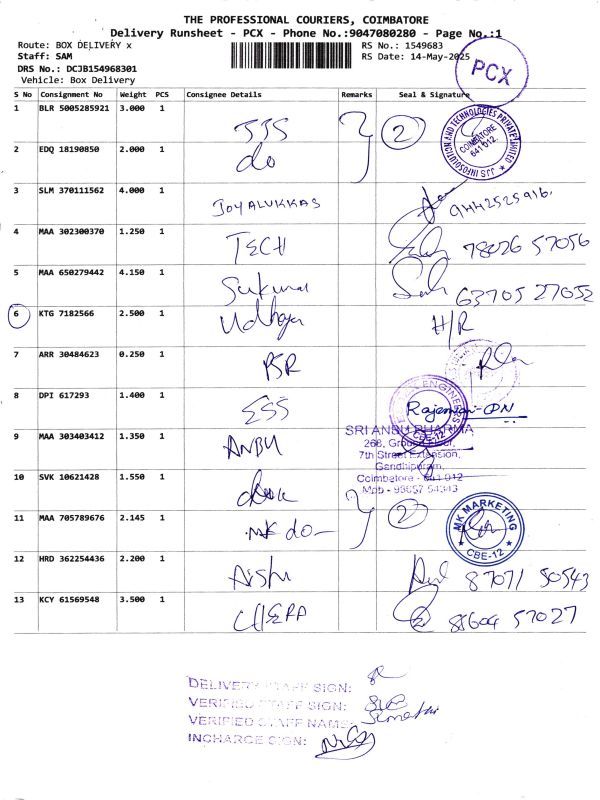 THE PROFESSIONAL COURIERS, COIMBATORE
Delivery Runsheet - PCX - Phone No.:9047080280 - Page No.:1
Route: BOX DELIVERY x
Staff: SAM
DRS No.: DCJB154968301
Vehicle: Box Delivery
RS No.: 1549683
RS Date: 14-May-2025
PCX
S No Consignment No Weight PCS Consignee Details Remarks Seal & Signature
1 BLR 5005285921 3.000 1 JJS 2
JJS INFOSOLUTION AND TECHNOLOGIES PRIVATE LIMITED
COIMBATORE
641 012
2 EDQ 18190850 2.000 1 do
3 SLM 370111562 4.000 1 JOYALUKKAS 9442525916.
4 MAA 302300370 1.250 1 TECH 78026 57056
5 MAA 650279442 4.150 1 Sukumar 63705 27052
6 KTG 7182566 2.500 1 Udhaya H/R
7 ARR 30484623 0.250 1 PSR
8 DPI 617293 1.400 1 ESS
ENGINEERS
CBE-12
9 MAA 303403412 1.350 1 ANBU
SRI ANBU PHARMA
268, Ground Floor,
7th Street Extension,
Gandhipuram,
Coimbatore - 641 012
10 SVK 10621428 1.550 1
11 MAA 705789676 2.145 1 MK do 2
MK MARKETING
CBE-12
12 HRD 362254436 2.200 1 Aishu 87071 50543
13 KCY 61569548 3.500 1 57027
DELIVERY STAFF SIGN:
VERIFIED STAFF SIGN:
VERIFIED STAFF NAME: Sumathi
INCHARGE SIGN: